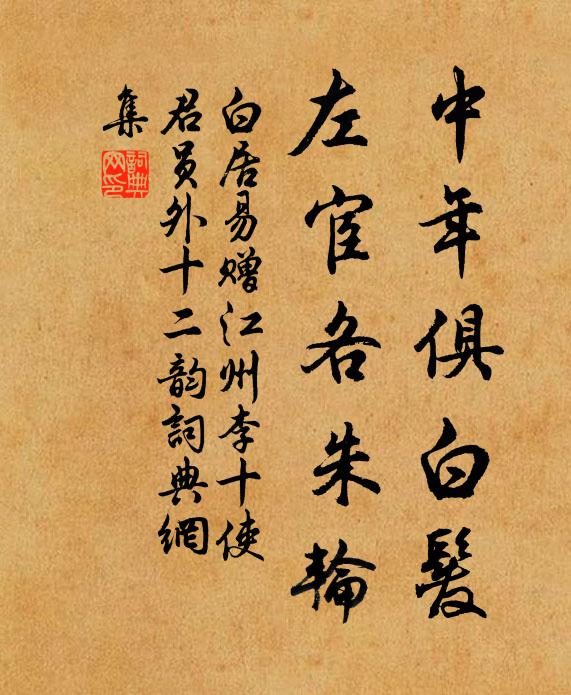 中年俱白髮
左宦各朱輪
白居易贈江州李十使
君員外十二韵詞典網
集
詞典
网印